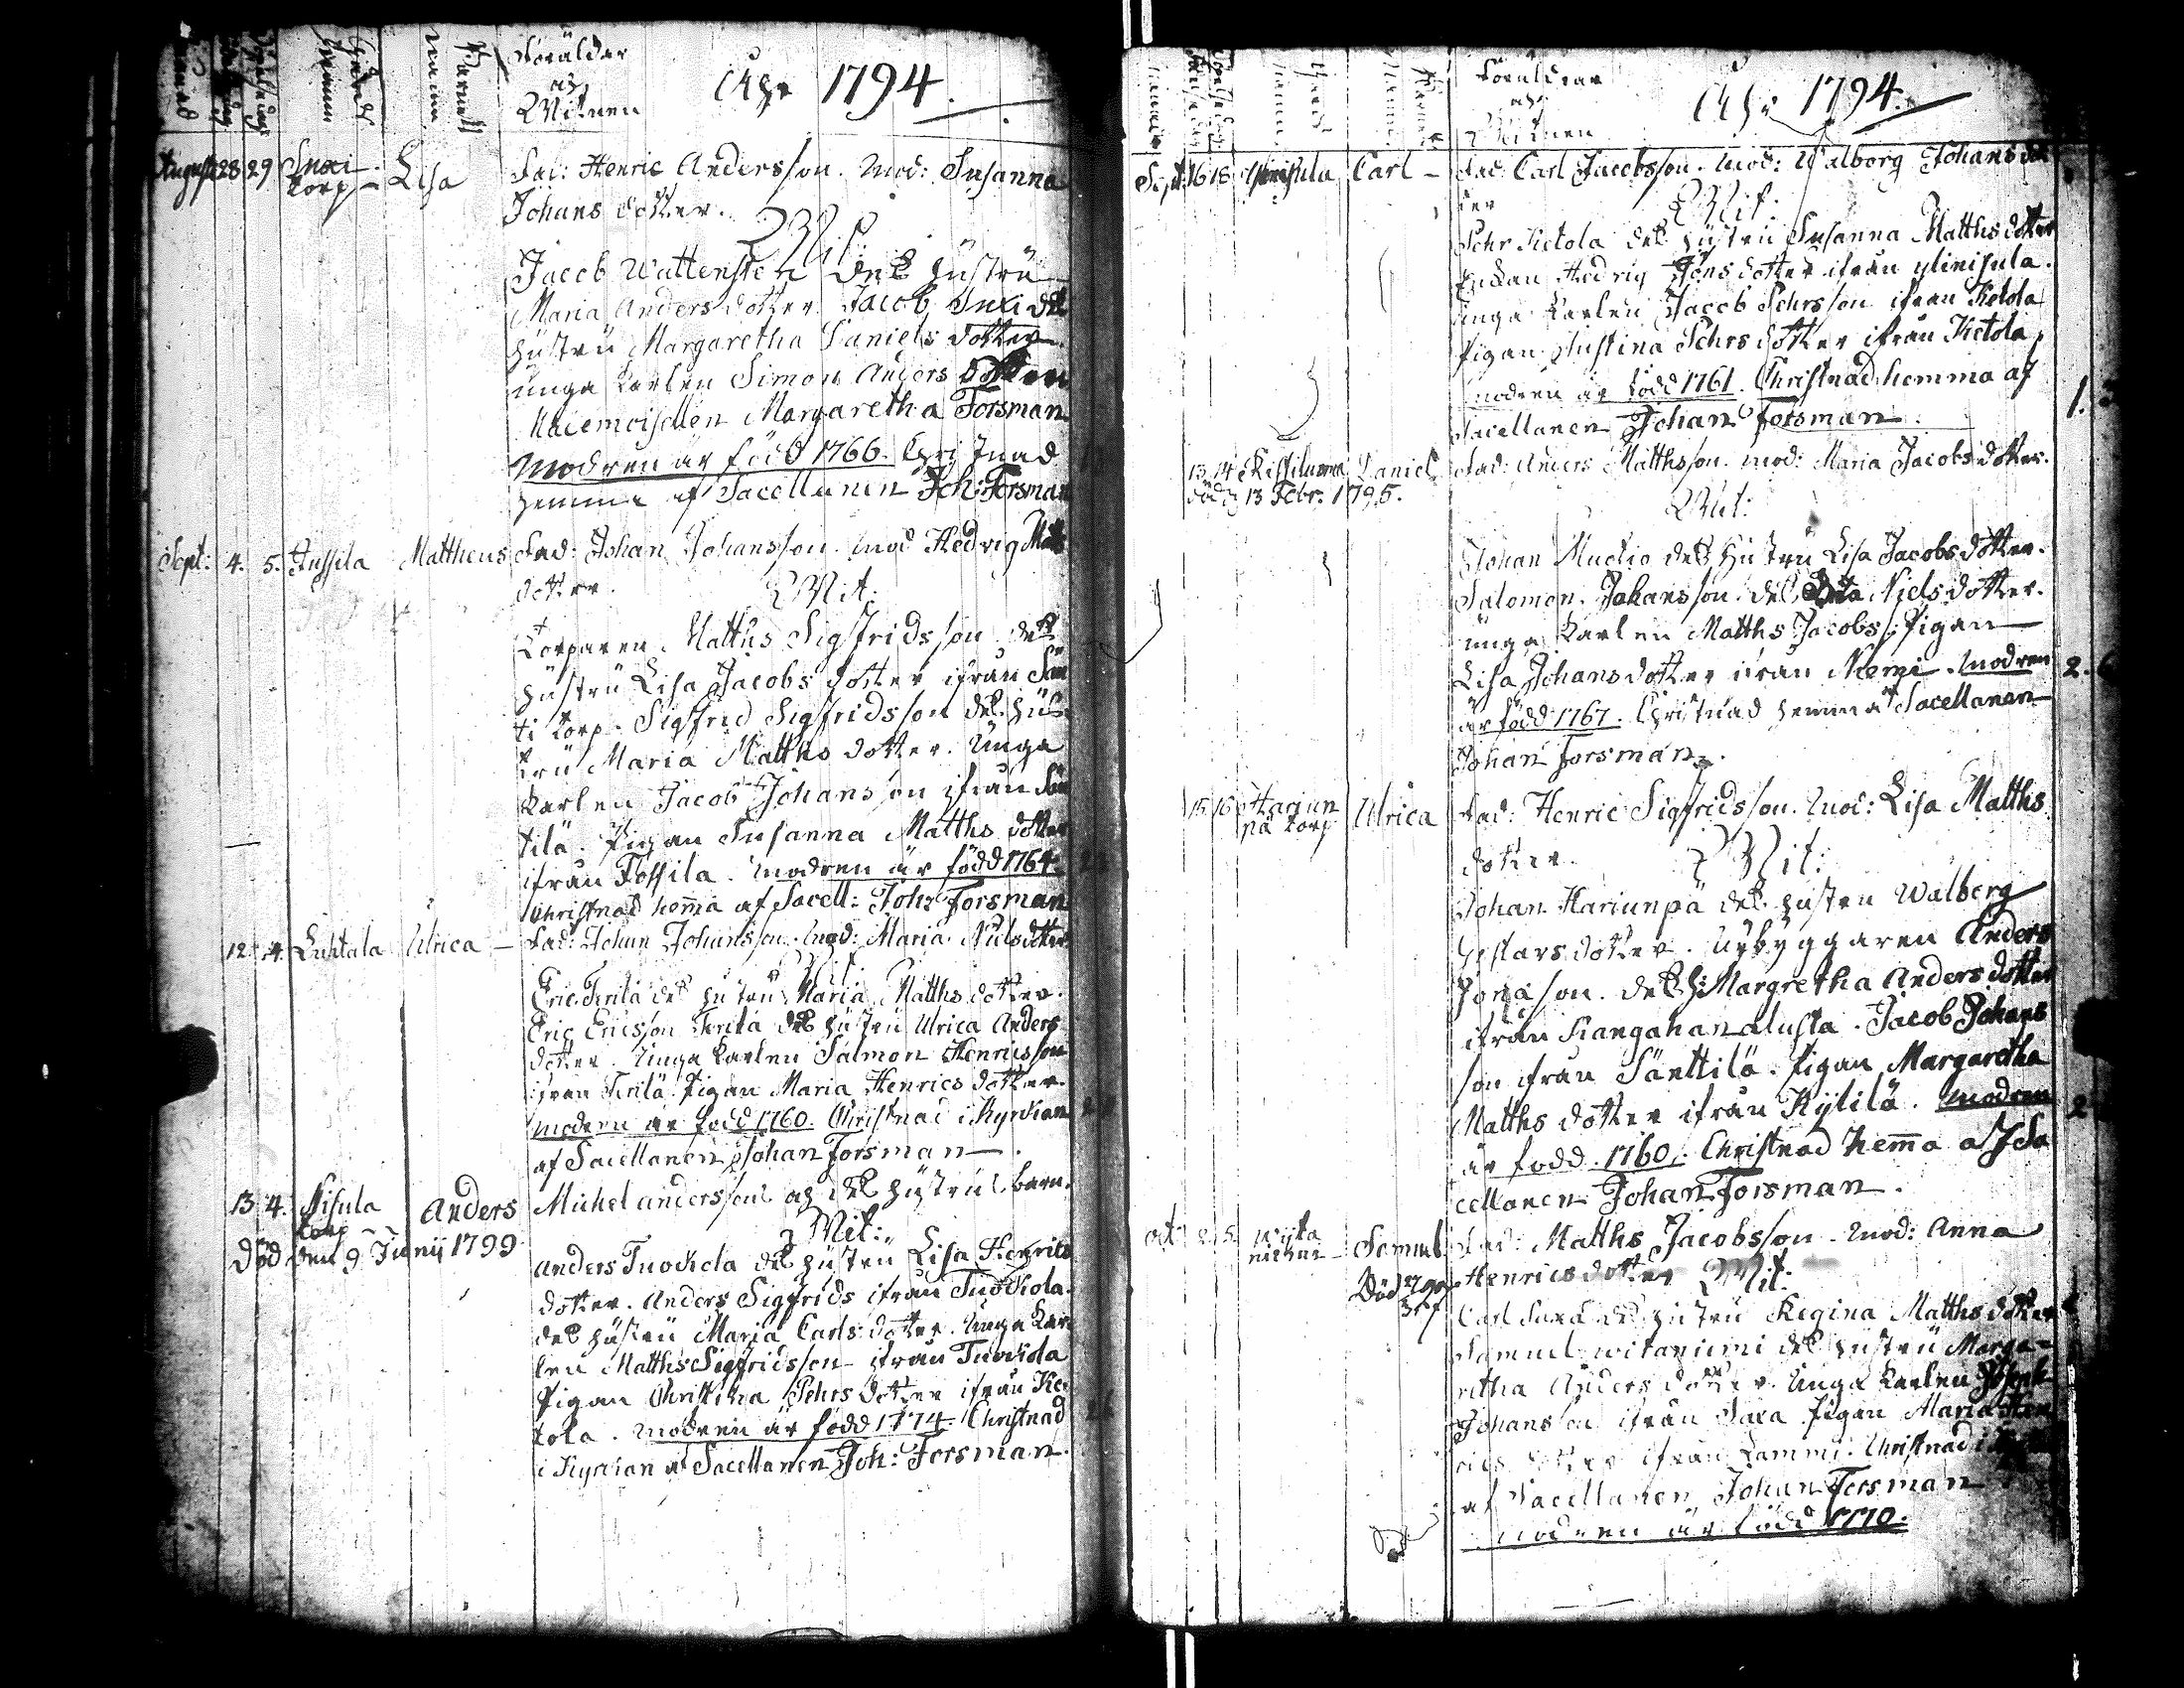 Föräldar
och
Witnen
Åhr 1794.
August 28 29 Inxi torp Lisa Fad: Henric Andersson. Mod: Susanna
Johans dotter.
Wit:
Jacob Wattensten dess hustru
Maria Anders dotter. Jacob Inxi dess
hustru Margaretha Daniels dotter.
unga karlen Simon Anders
Mademoisellen Margaretha Forsman
Modren är född 1766. Christnad
hemma af Sacellanen Joh: Forsman
Sept: 4. 5. Jussila Mattheus Fad: Johan Johansson. Mod Hedvig Matts
dotter. Wit:
Torparen Matths Sigfridsson dess
hustru Lisa Jacobs dotter ifrån Sän
ti torp. Sigfrid Sigfridsson dess hus
tru Maria Matths dotter. Unga
karlen Jacob Johansson ifrån Sän
tilä. Pigan Susanna Matths dotter
ifrån Jossila. Modren är född 1764.
Christnad hemma af Sacell: Joh: Forsman
12. 14. Luhtala Ulrica Fad: Johan Johansson. Mod: Maria Nielsdotter
Wit:
Eric Tertä dess hustru Maria Matths dotter.
Eric Ericsson Tertä dess hustru Ulrica Anders
dotter. Unga karlen Salmon Henricsson
ifrån Tertä. Pigan Maria Henrics dotter.
Modren är född 1760. Christnad i Kyrkian
af Sacellanen Johan Forsman
13 4. Nisula torp Anders Michel Anderssons och dess hustrus barn.
Död den 9 Junij 1799
Wit:
Anders Tuokola dess hustru Lisa Henrics
dotter. Anders Sigfrids ifrån Tuokola.
dess hustru Maria Carls dotter. Unga kar
len Matths Sigfridsson ifrån Tuokola
Pigan Christina Pehrs dotter ifrån Ke
tola. Modren är född 1774. Christnad
i Kyrkian af Sacellanen Joh: Forsman.
Föräldrar
och
Witnen
Åhr 1794.
Sept: 16 18 Carl Fad: Carl Jacobsson. Mod: Walborg Johans dot
ter Wit:
Pehr Ketola dess hustru Susanna Matths dotter
Enkan Hedvig Jöns dotter ifrån ylinisula.
unga karlen Jacob Pehrsson ifrån Ketola
pigan Justina Pehrs dotter ifrån Ketola
modren är född 1761. Christnad hemma af
Sacellanen Johan Forsman
13. 14 Daniel Fad: Anders Matthsson. Mod: Maria Jacobs dotter.
död 13 Febr. 1795.
Wit:
Johan Muctio dess hustru Lisa Jacobs dotter.
Salomon Johansson dess Niels dotter.
unga karlen Matths Jacobs: Pigan
Lisa Johans dotter ifrån Niemi. Modren
är född 1767. Christnad hemma af Sacellanen
Johan Forsman.
15. 16 Harjun
pä torp Ulrica Fad: Henric Sigfridsson. Mod: Lisa Matths
dotter. Wit:
Johan Hariunpä dess hustru Walberg
Gustavs dotter. Nybyggaren Anders
Jonason. dess h: Margretha Anders dotter
ifrån Kangahanalusta. Jacob Johans
son ifrån Sänttilä. Pigan Margaretha
Matths dotter ifrån Kylilä. Modren
är född 1760. Christnad hemma af Sa
cellanen Johan Forsman.
oct 2. 5. Samuel Fad: Matths Jacobsson. Mod: Anna
Henrics dotter Wit:
Carl Saxa dess hustru Regina Matths dotter
Samuel witaniemi dess hustru Marga-
retha Anders dotter. Unga karlen Joseph
Johansson ifrån Saxa. Pigan Maria Hen
rics dotter ifrån Lammi. Christnad i
af Sacellanen Johan Forsman
Modren är född 1770.